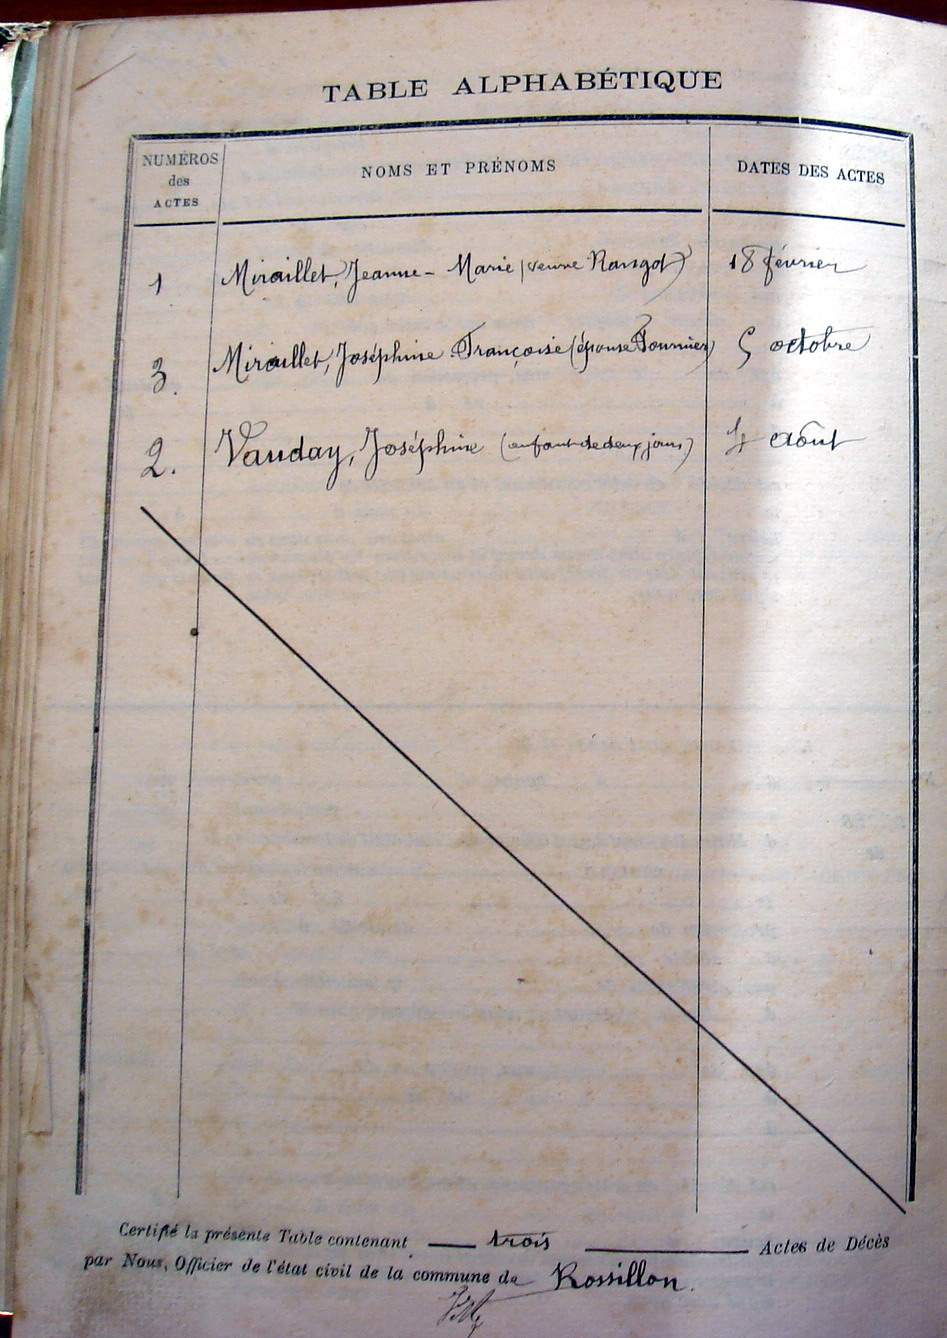 TABLE ALPHABÉTIQUE
NUMÉROS
des
ACTES
NOMS ET PRÉNOMS
DATES DES ACTES
1 Miraillet, Jeanne-Marie (veuve Rangot) 18 février
3. Miraillet, Joséphine Françoise (épouse Fournier) 5 octobre
2. Vauday, Joséphine (enfant de deux jours) 4 août
Certifié la présente Table contenant trois Actes de Décès
par Nous, Officier de l'état civil de la commune de Rossillon.